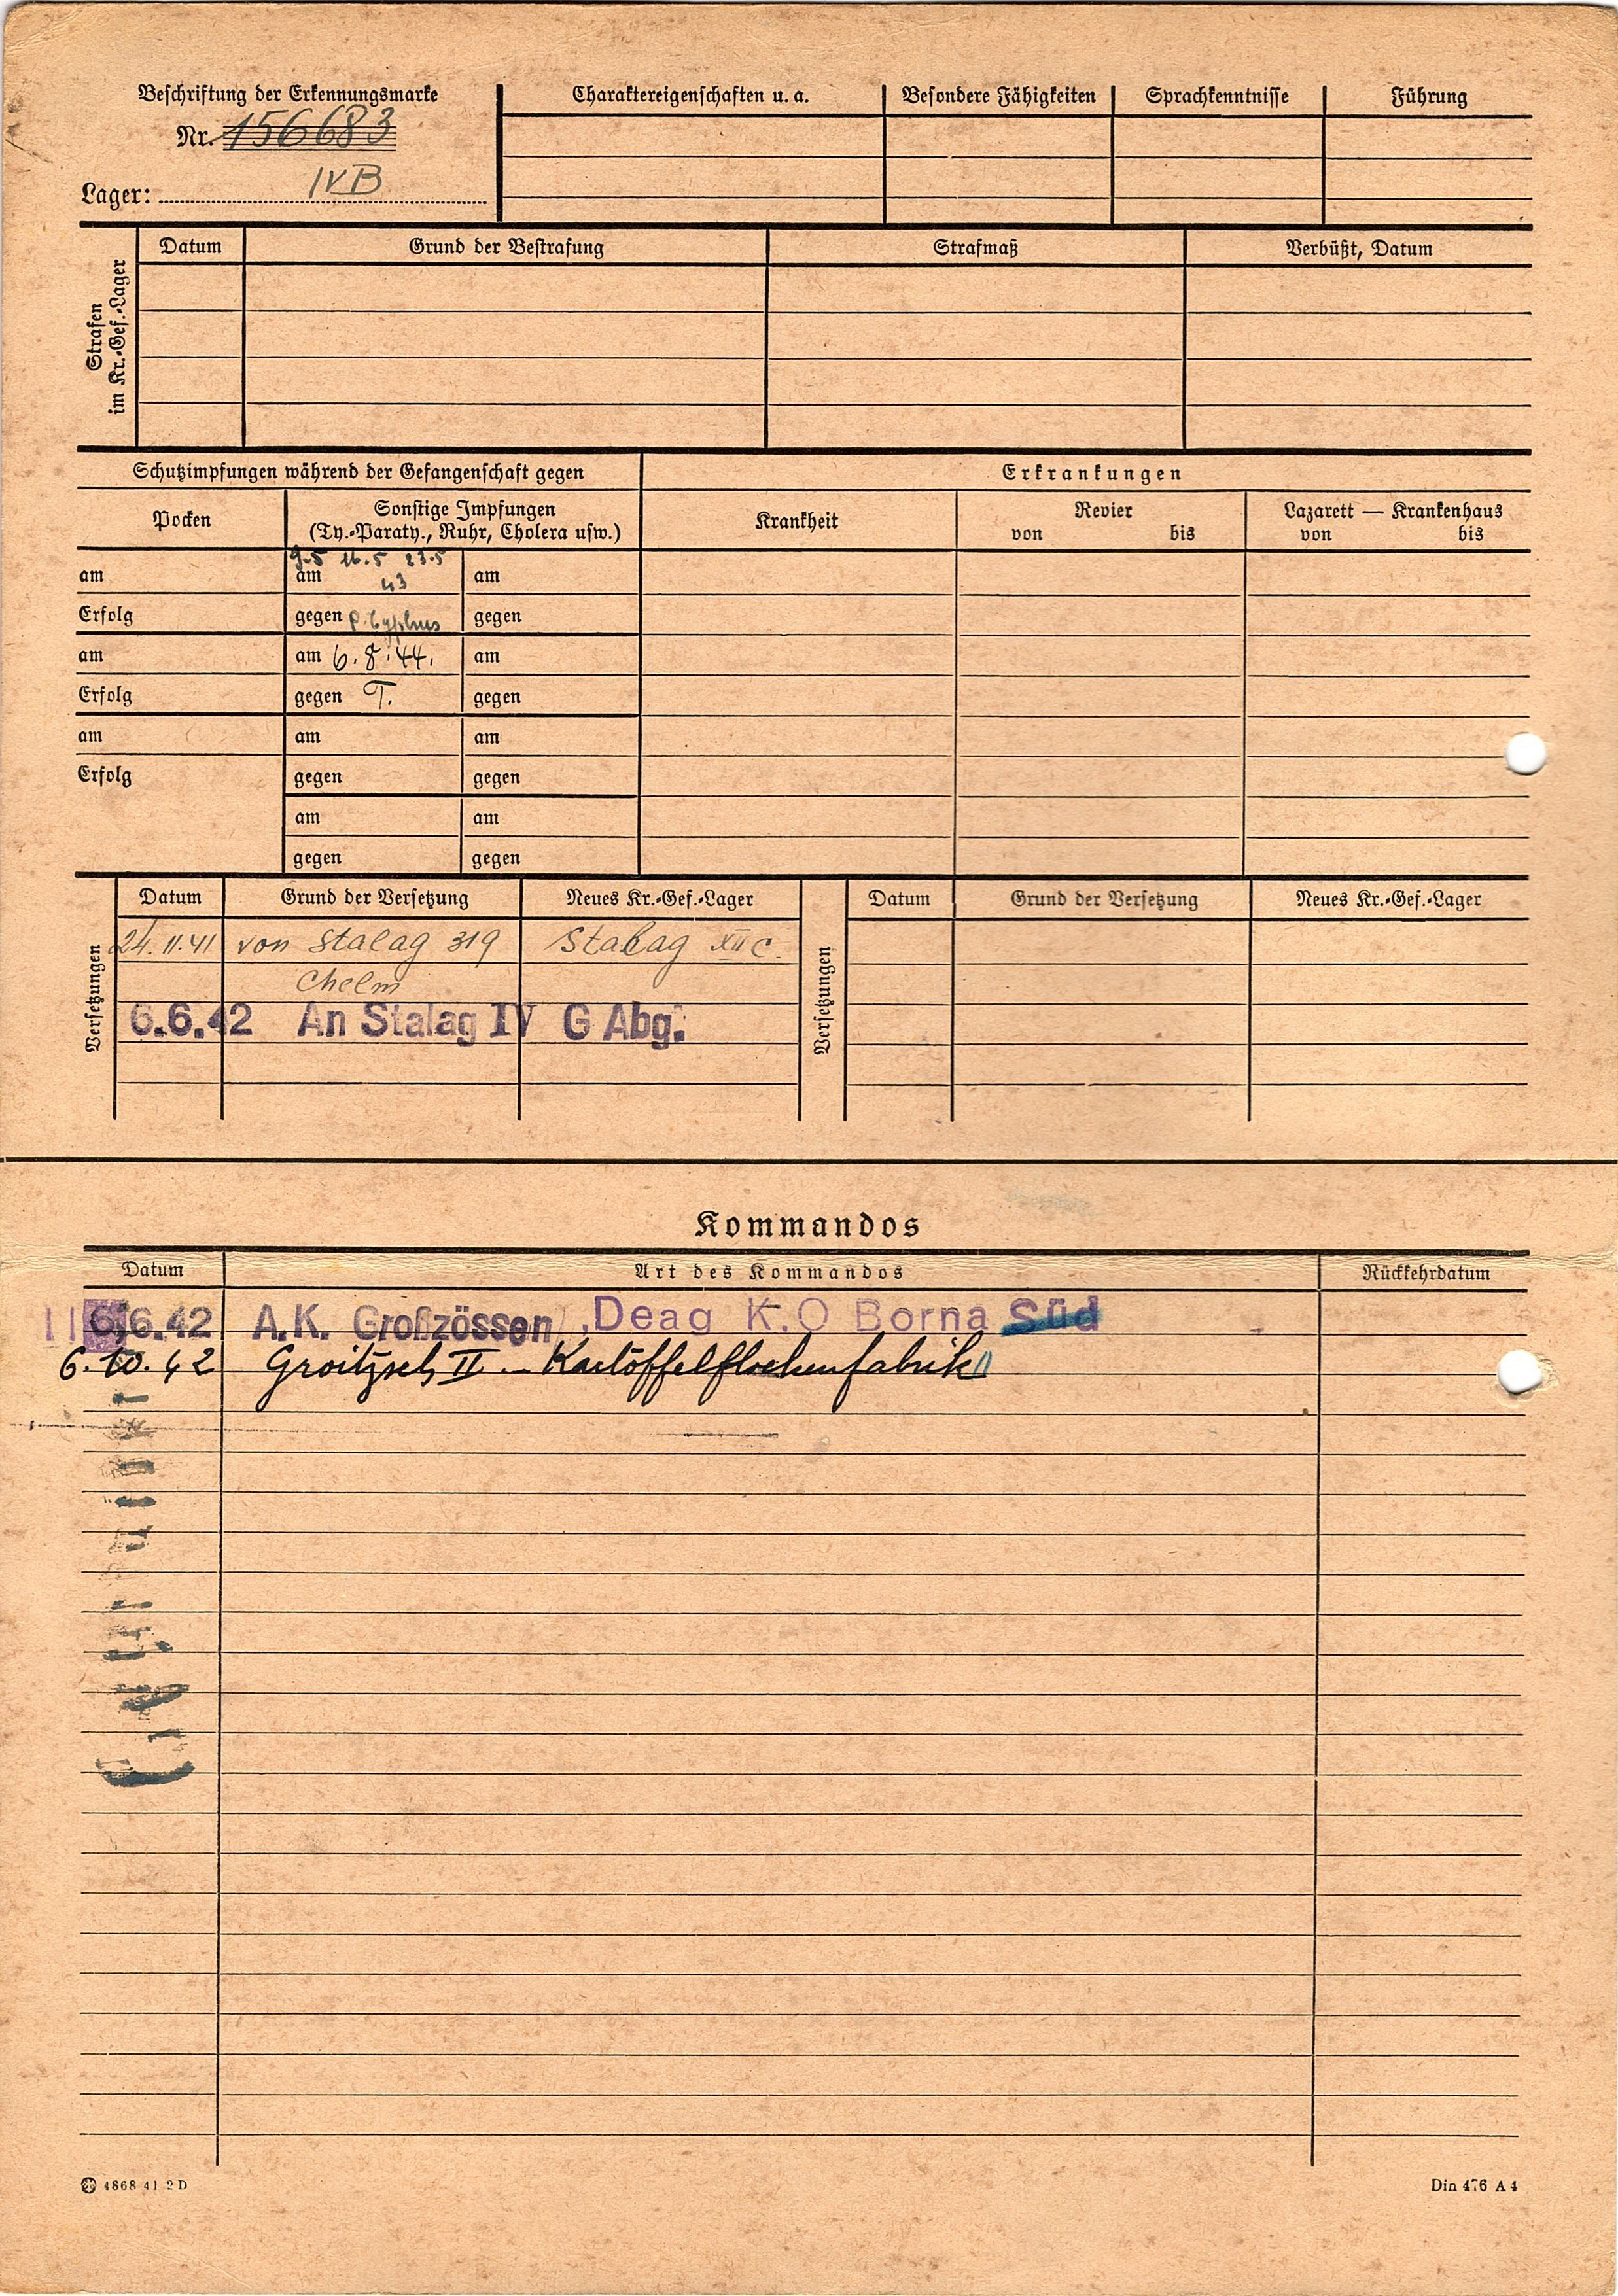 Beschriftung der Erkennungsmarke
Nr. 156683
Lager: IVB
Charaktereigenschaften u. a.
Besondere Fähigkeiten
Sprachkenntnisse
Führung
Strafen
im Kr.-Gef.-Lager
Datum
Grund der Bestrafung
Strafmaß
Verbüßt, Datum
Schutzimpfungen während der Gefangenschaft gegen
Erkrankungen
Pocken
Sonstige Impfungen
(Ty.-Paraty., Ruhr, Cholera usw.)
Krankheit
Revier
von bis
Lazarett — Krankenhaus
von bis
9.5 16.5 23.5
am am 43 am
Erfolg gegen P. typhus gegen
am am 6.8.44. am
Erfolg gegen T. gegen
am am am
Erfolg gegen gegen
am am
gegen gegen
Versetzungen
Datum Grund der Versetzung Neues Kr.-Gef.-Lager
24.11.41 von Stalag 319 Stalag XII C.
Chelm
6.6.42 An Stalag IV G Abg.
Versetzungen
Datum Grund der Versetzung Neues Kr.-Gef.-Lager
Kommandos
Datum Art des Kommandos Rückkehrdatum
11 6.6.42 A.K. Großzössen, Deag K.O Borna Süd
6.10.42 Groitzsch II - Kartoffelflockenfabrik
4868 41 2 D
Din 476 A 4